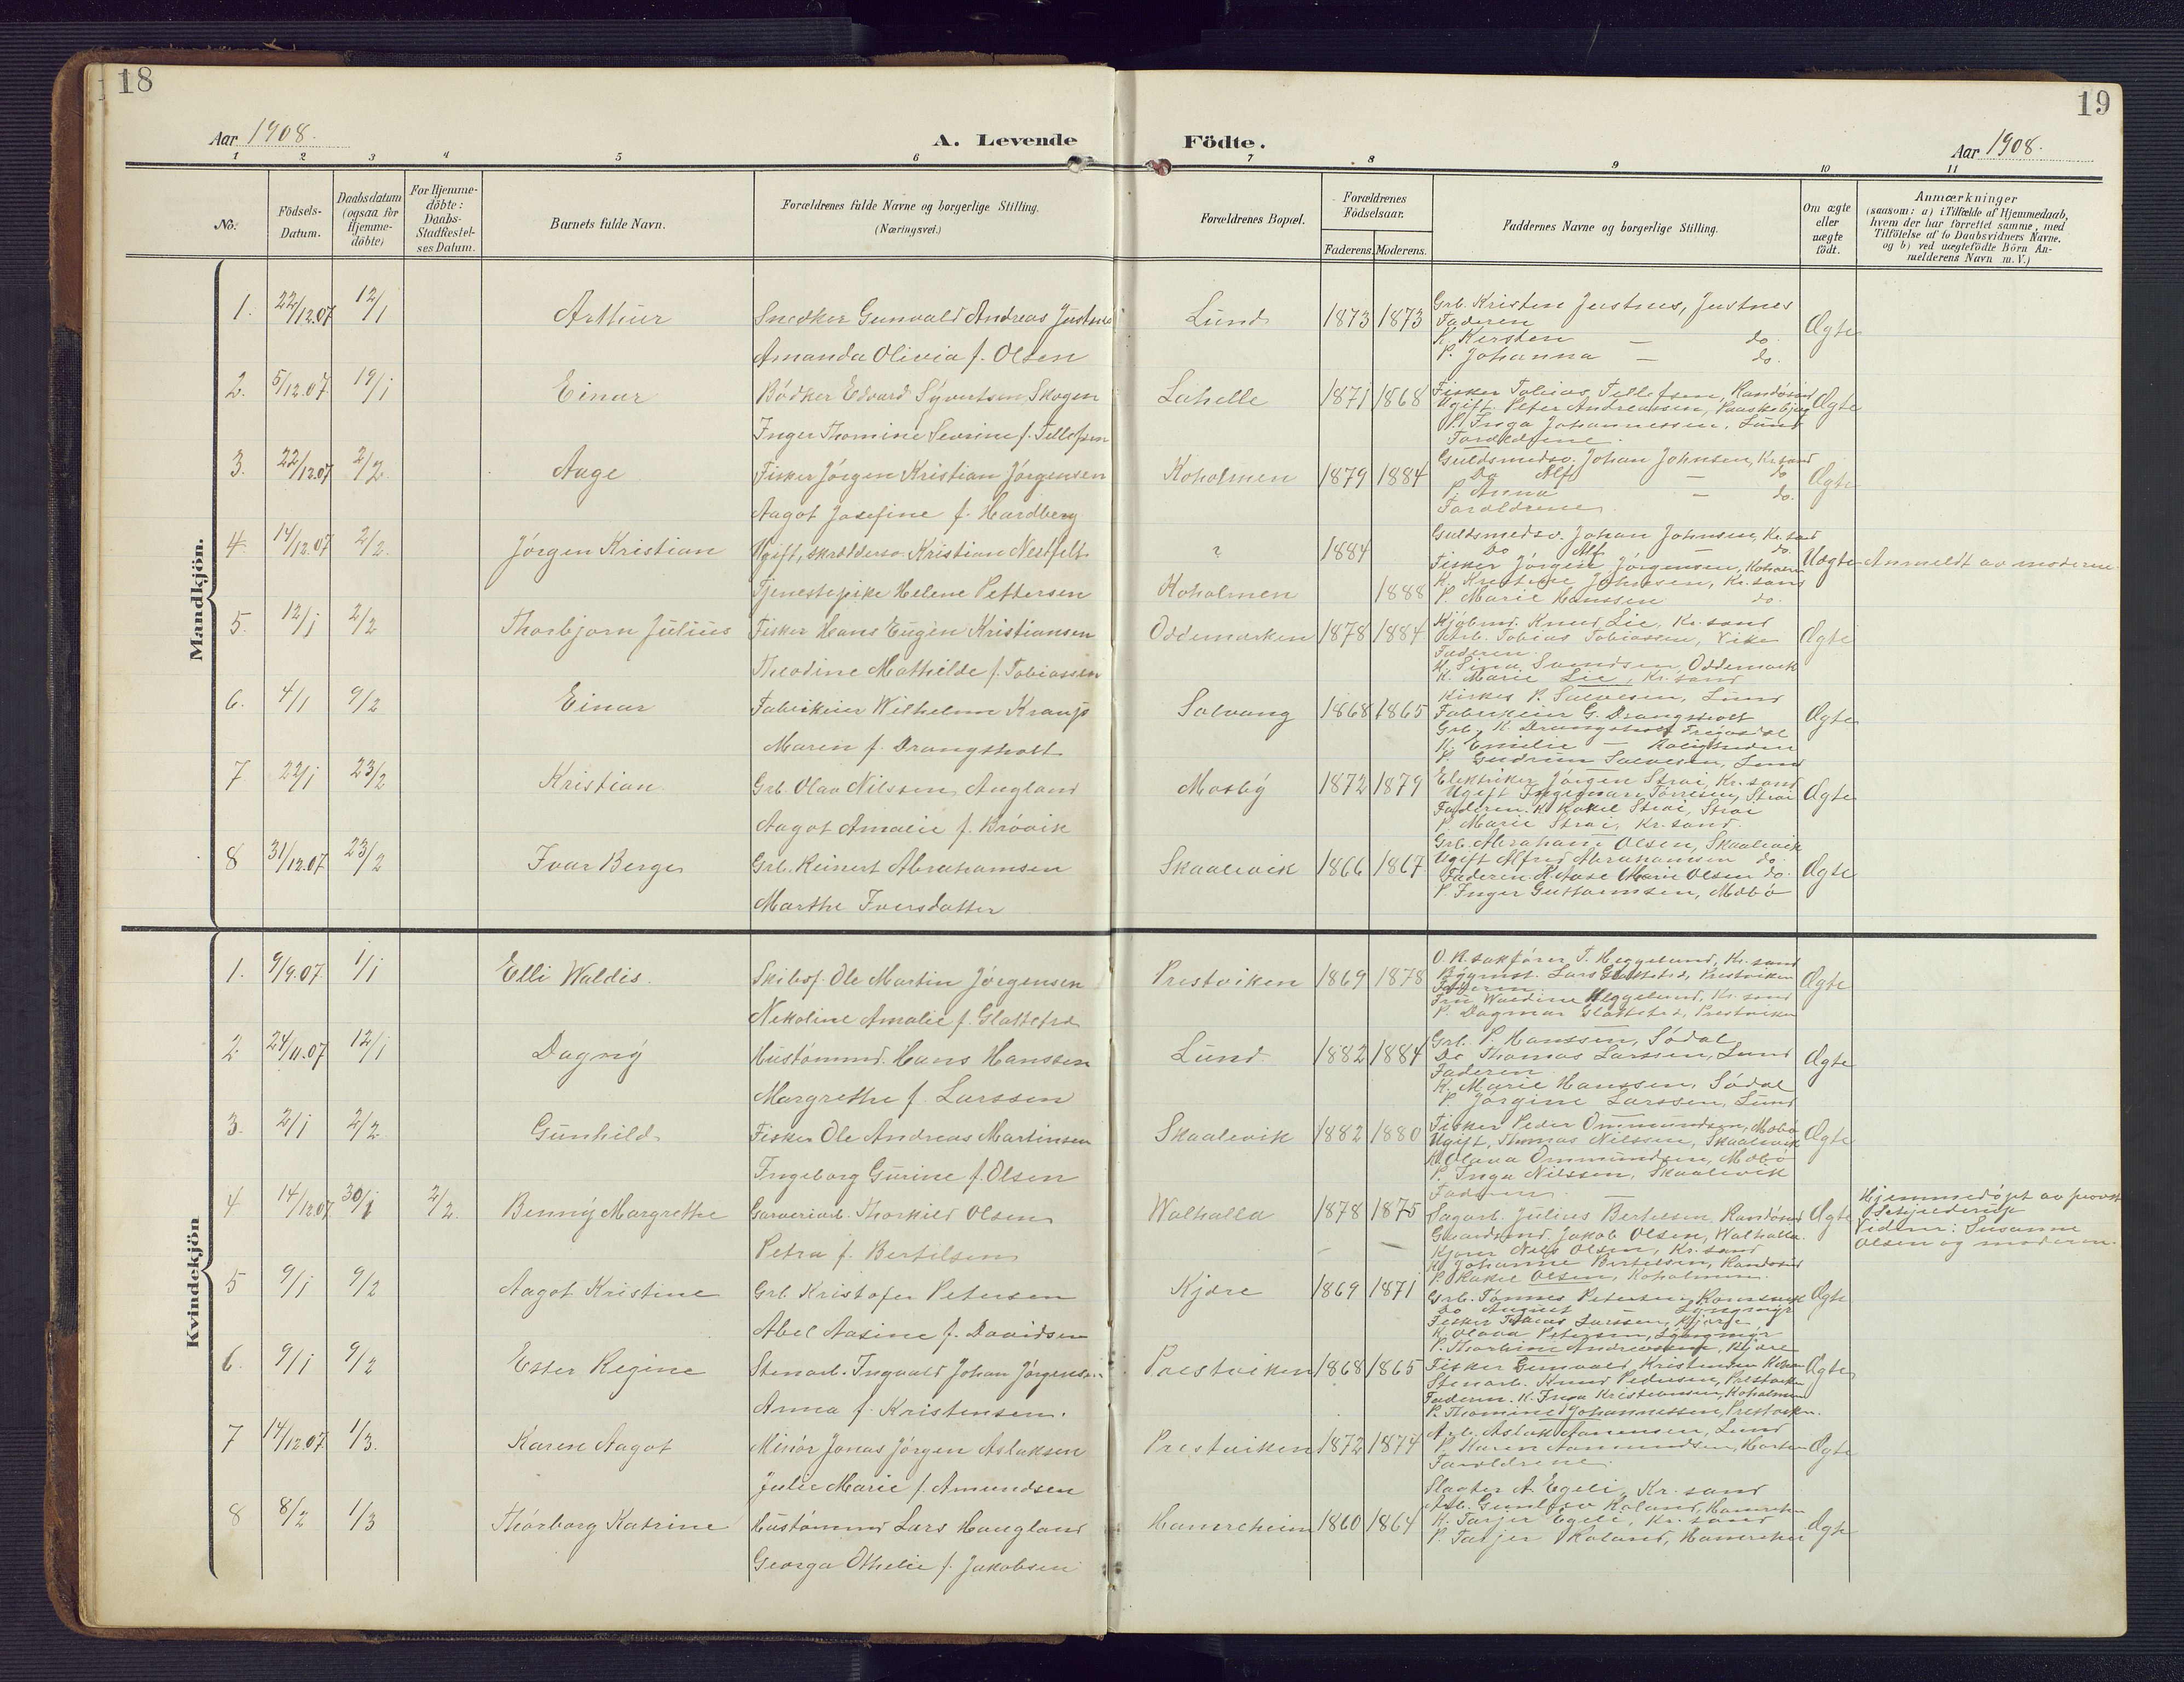 18
19
Aar 1908.
A. Levende Födte.
Aar 1908.
1 2 3 4 5 6 7 8 9 10 11
No.
Födsels-Datum.
Daabsdatum (ogsaa for Hjemme-döbte)
For Hjemme-döbte: Daabs-Stadfæstel-ses Datum.
Barnets fulde Navn.
Forældrenes fulde Navne og borgerlige Stilling.
(Næringsvei.)
Forældrenes Bopæl.
Forældrenes Födselsaar.
Faderens. Moderens.
Faddernes Navne og borgerlige Stilling.
Om ægte eller uægte födt.
Anmærkninger
(saasom: a) i Tilfælde af Hjemmedaab, hvem der har forrettet samme, med Tilföielse af to Daabsvidners Navne, og b) ved uægtefödte Börn Anmelderens Navn m. V.)
Mandkjön.
1. 22/12.07 12/1 Arthur Snedker Gunvald Andreas Justnes Lund 1873 1873 Grb. Kristen Justnes, Justnes Ægte
Faderen
Amanda Olivia f. Olsen
K. Kersten — do.
P. Johanna — do.
2. 5/12.07 19/1 Einar Bödker Edvard Syvertsen Skogen 1871 1868 Fisker Tobias Tellefsen, Randösund Ægte
Ugift. Peter Andreassen,
Inger Thomine Sevrine f. Tellefsen
P. Inga Johannessen, Lund
Forældrene.
3. 22/12.07 2/2 Aage Fisker Jörgen Kristian Jörgensen Koholmen 1879 1884 Guldsmedsv. Johan Johnsen, Kr.sand Ægte
Do Alf — do
Aagot Josefine f. Hardberg
P. Anna — do.
Forældrene.
4. 14/12.07 2/2 Jörgen Kristian Ugift, skræddersv. Kristian Nestfelt ? 1884 Guldsmedsv. Johan Johnsen, Kr.sand Uægte Anmeldt av moderen
Do Alf — do.
Fisker Jörgen Jörgensen, Koholm
Tjenestepike Helene Pettersen Koholmen 1888
K. Kristine Johnsen, Kr.sand
P. Marie Hanssen do.
5. 12/1 2/2 Thorbjorn Julius Fisker Hans Eugén Kristiansen Oddemarken 1878 1884 Kjöbmd. Knud Lie, Kr.sand Ægte
Arb. Tobias Tobiassen, Vike
Faderen.
Theodine Mathilde f. Tobiassen
K. Sina Svendsen, Oddemark
K. Marie Lie, Kr.sand
6. 4/1 9/2 Einar Fabrikeier Wilhelm Kranjs Solvang 1868 1865 Kirkes. P. Salvesen, Lund Ægte
Fabrikeier G. Drangsholt
Grb. K. Drangsholt
Maren f. Drangsholt
K. Emilie — Roligheden
P. Gudrun Salvesen, Lund
7 22/1 23/2 Kristian Grb. Olav Nilssen Augland Mosby 1872 1879 Elektriker Jörgen Strai, Kr.sand Ægte
Ugift Ingeman Torresen, Strai
Faderen. K. Rakel Strai, Strai
Aagot Amalie f. Brövik
P. Marie Strai, Kr.sand.
8 31/12.07 23/2 Ivar Berge Grb. Reinert Abrahamsen Skaalevik 1866 1867 Grb. Abraham Olsen, Skaalevik Ægte
Ugift Alfred Abrahamsen do.
Faderen. K. Aase Marie Olsen do.
Marthe Iversdatter
P. Inger Guttormsen, Mobö
Kvindekjön
1. 9/9.07 1/1 Elli Waldis. Skibsf. Ole Martin Jörgensen Prestviken 1869 1878 O.R.sakförer T. Heggelund, Kr.sand Ægte
Bygmst. Lars Glattetre, Prestviken
Faderen.
Fru Waldine Heggelund, Kr.sand
Nikoline Amalie f. Glattetre
P. Dagmar Glattetre, Prestviken
2. 24/11.07 12/1 Dagny Hustömmd. Hans Hanssen Lund. 1882 1884 Grb. P. Hanssen, Södal Ægte
Do Thomas Larssen, Lund
Faderen
Margrethe f. Larssen
K. Marie Hanssen, Södal
P. Jörgine Larssen, Lund
3. 2/1 2/2 Gunhild Fisker Ole Andreas Martinsen Skaalevik 1882 1880 Fisker Peder Ommundsen, Mobö Ægte
Ugift, Thomas Nilssen, Skaalevik
K. Olava Ommundsen, Mobö
Ingeborg Gurine f. Olsen
P. Inga Nilssen, Skaalevik
Faderen.
4 14/12.07 30/1 2/2. Benny Margrethe Garveriarb. Thorkild Olsen Walhalla 1878 1875 Sagarb. Julius Bertelsen, Randösund Ægte Hjemmedöpt av provst
Schjelderup
Jakob Olsen, Walhalla.
Vidner: Susanne
Olsen og moderen.
Kjorer Nils Olsen, Kr.sand
Petra f. Bertilsen
K. Johanne Bertelsen, Randösund
P. Rakel Olsen, Koholmen.
5 9/1 9/2 Aagot Kristine Grb. Kristofer Petersen Kjære 1869 1871 Grb. Tönnes Petersen, Ægte
Do August — Lyngmyr
Fisker Tobias Larssen, Kjære
Abel Aasine f. Davidsen
K. Olava Petersen, Lyngmyr
P. Thorbine Andreassen, Kjære
6. 9/1 9/2 Ester Regine Stenarb. Ingvald Johan Jörgensen Prestviken 1868 1865 Fisker Gunvald Kristensen Koholm Ægte
Stenarb. Knud Pedersen, Prestviken
Faderen. K. Inga Kristensen, Koholmen
Anna f. Kristensen.
P. Thomine Johannessen, Prestviken.
7 14/12.07 1/3. Karen Aagot Minör Jonas Jörgen Aslaksen Prestviken 1872 1874 Arb. Aslak Aanensen, Lund Ægte
P. Karen Aamundsen, Horten
Julie Marie f. Amundsen
Forældrene.
8 8/2 1/3 Thorborg Katrine Hustömmd Lars Haugland Hamreheim 1860 1864 Slagter A. Egeli, Kr.sand Ægte
Arb. Gunleiv Roland, Hamreheim
K. Tarjer Egeli, Kr.sand
Georga Othelie f. Jakobsen
P. Tarjer Roland, Hamrehei